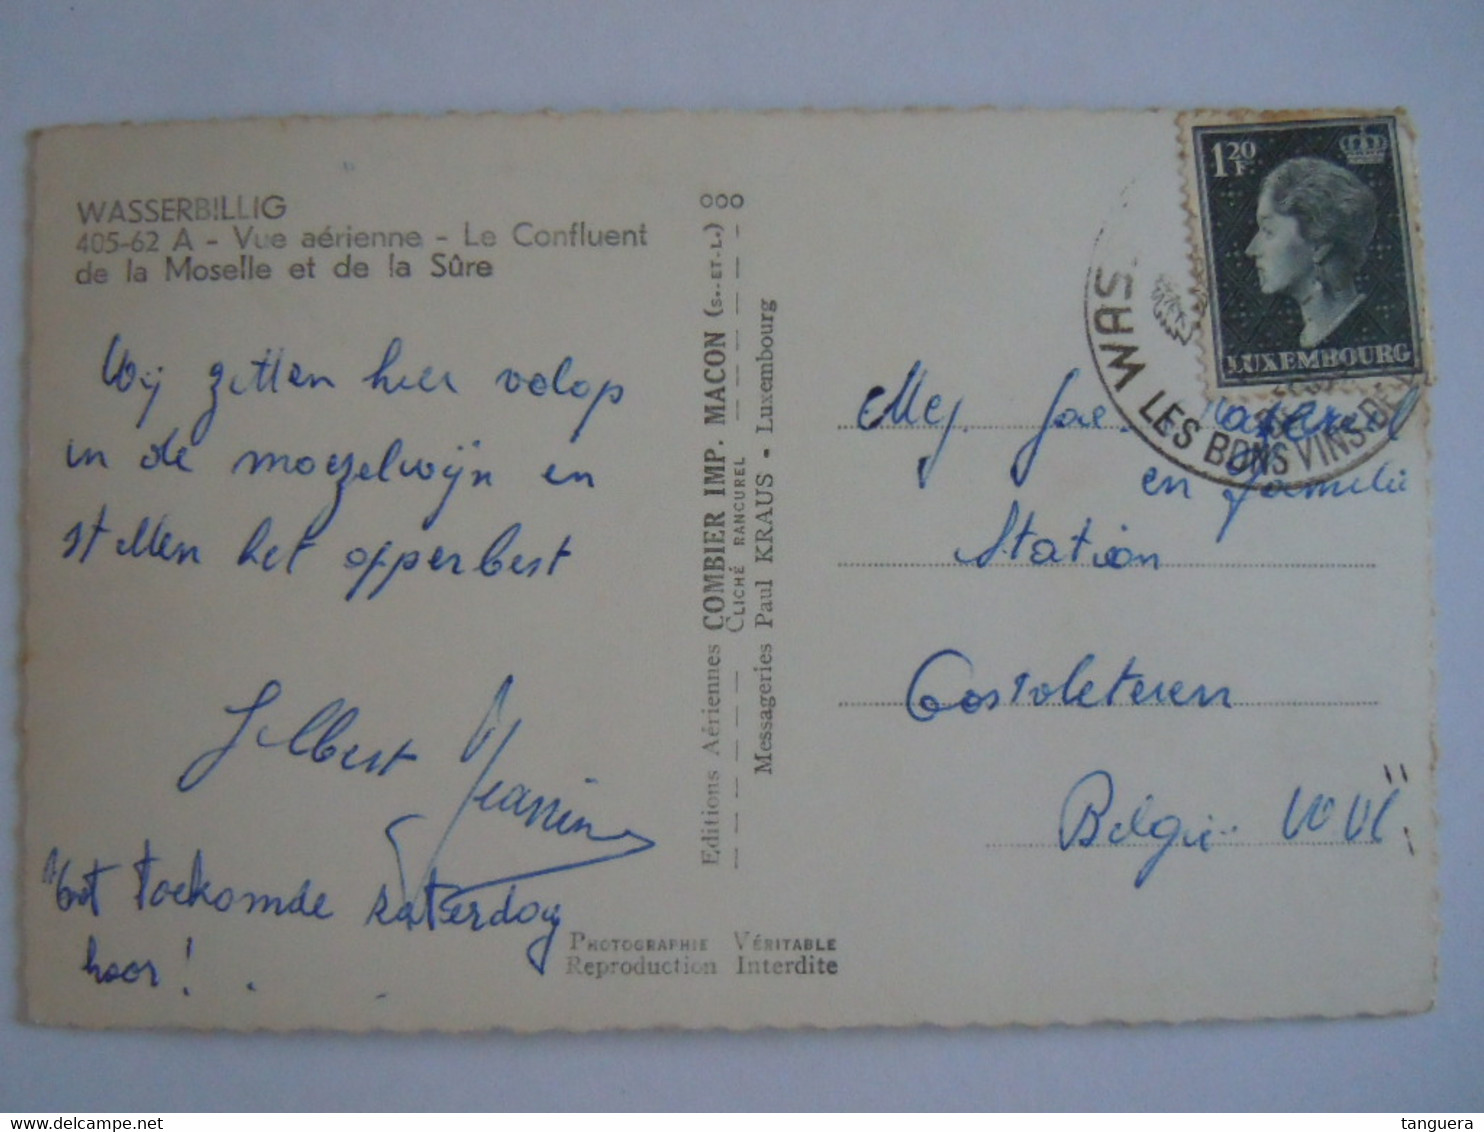 WASSERBILLIG
405-62 A - Vue aérienne - Le Confluent
de la Moselle et de la Sûre
Wij zitten hier volop
in de moezelwijn en
stellen het opperbest
Gilbert Jeannine
Tot toekomde zaterdag
hoor!
Editions Aériennes COMBIER IMP. MACON (S.-ET-L.)
CLICHÉ RANCUREL
Messageries Paul KRAUS - Luxembourg
PHOTOGRAPHIE VÉRITABLE
Reproduction Interdite
1 20 F.
LUXEMBOURG
WAS
LES BONS VINS DE
Mej.
en familie
Station
Oostvleteren
België W Vl